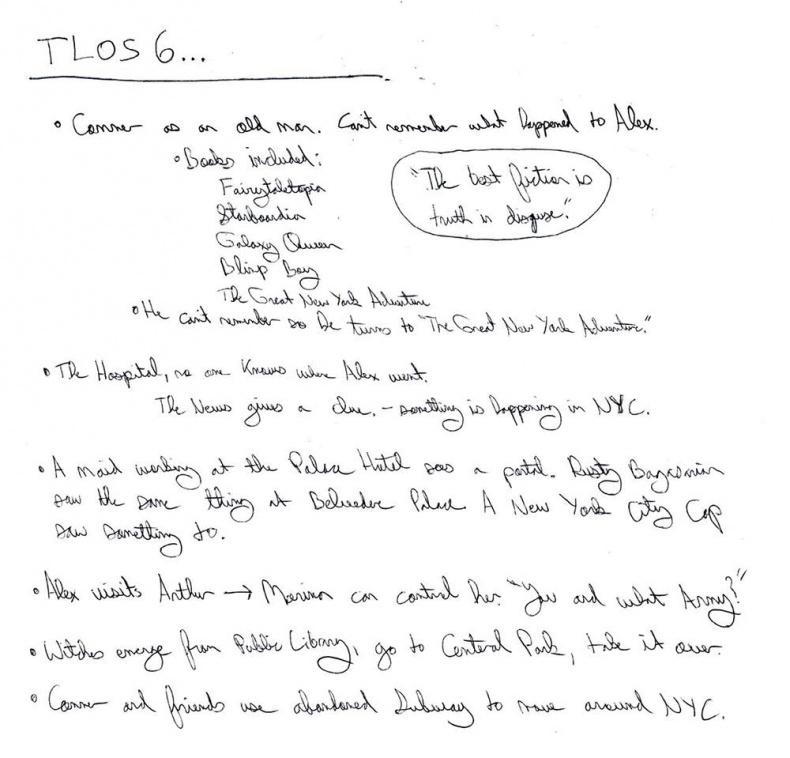 TLOS 6...
• Conner as an old man. Can't remember what happened to Alex.
• Books included:
Fairytaletopia
Starboardia
Galaxy Queen
Blimp Boy
The Great New York Adventure
"The best fiction is
truth in disguse."
• He can't remember so he turns to "The Great New York Adventure."
• The Hospital, no one knows where Alex went.
The News gives a clue. – something is happening in NYC.
• A maid working at the Palace Hotel saw a portal. Rusty
saw the same thing at Belvedere Palace A New York City Cop
saw something to.
• Alex visits Arthur → can control her. "You and what Army?"
• Witches emerge from Public Library, go to Central Park, take it over.
• Conner and friends use abandoned Subway to move around NYC.